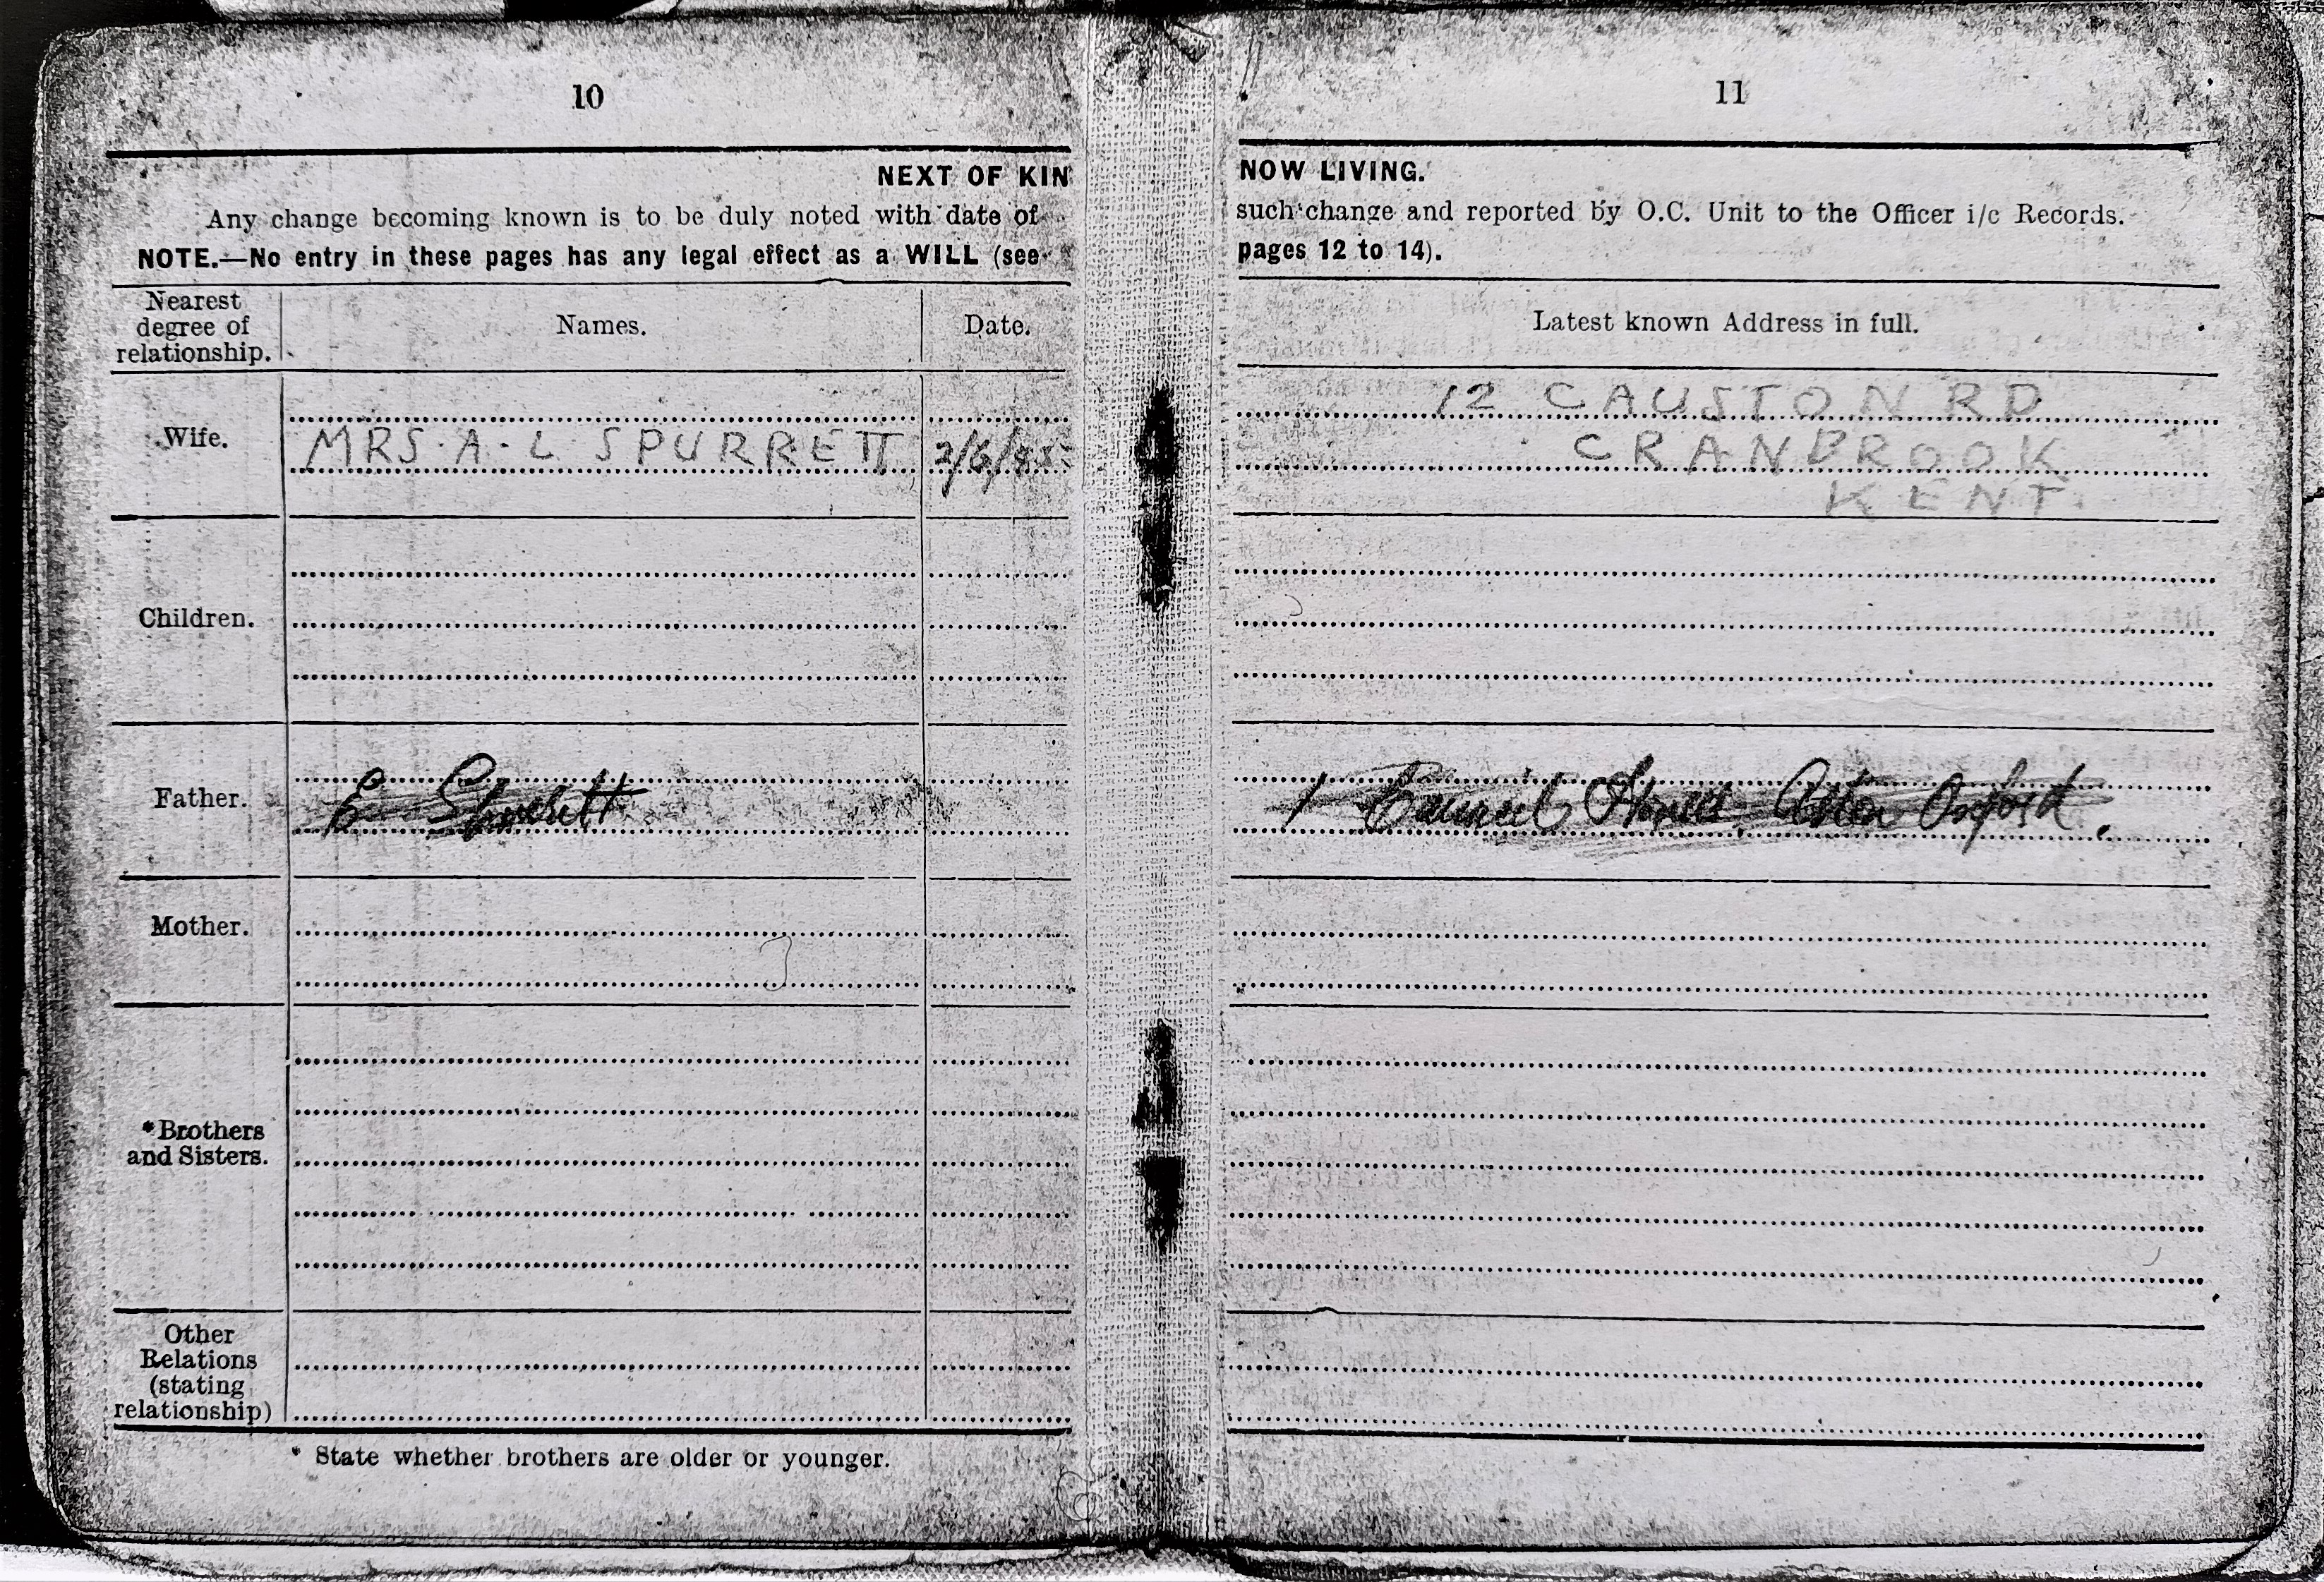 10
NEXT OF KIN
Any change becoming known is to be duly noted with date of
NOTE.—No entry in these pages has any legal effect as a WILL (see
Nearest degree of relationship.
Names.
Date.
Wife.
MRS. A. L SPURRETT
Children.
Father.
E Spurrett
Mother.
*Brothers and Sisters.
Other Relations (stating relationship)
* State whether brothers are older or younger.
11
NOW LIVING.
such change and reported by O.C. Unit to the Officer i/c Records.
pages 12 to 14).
Latest known Address in full.
12 CAUSTON RD
CRANBROOK
KENT.
1 Council Aston Oxford.